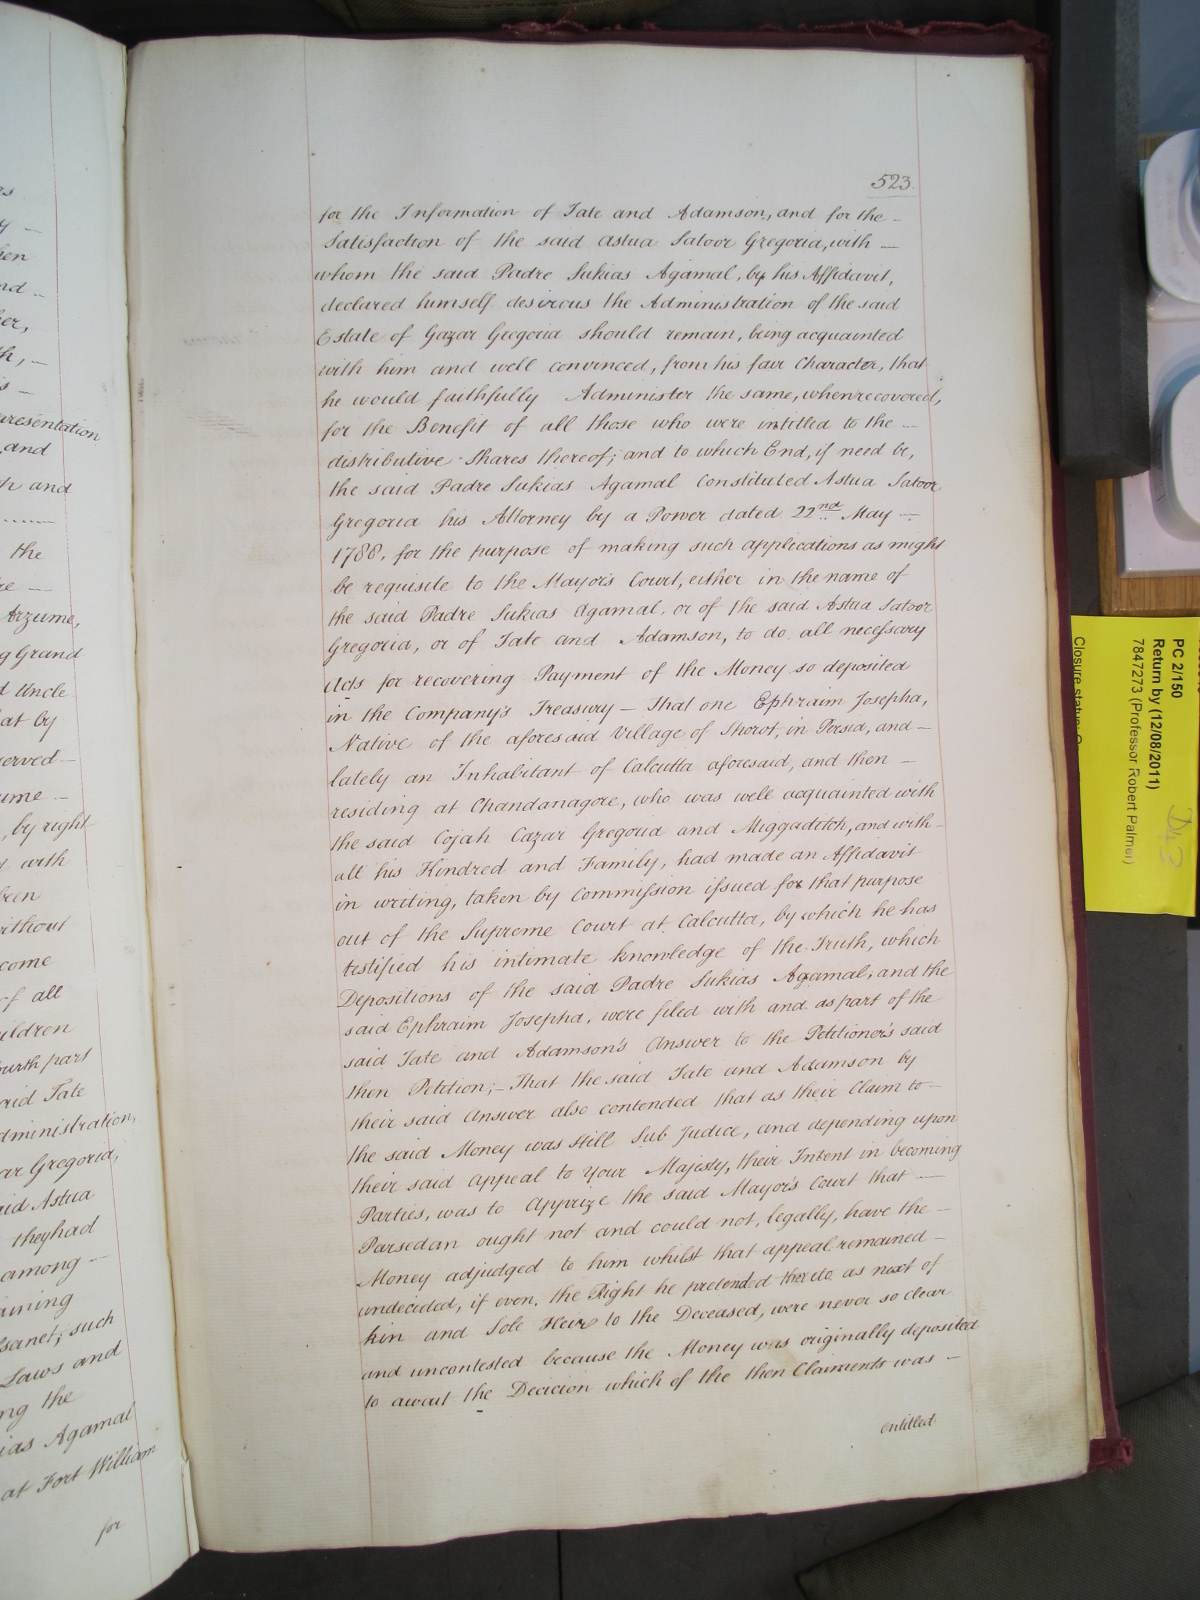 523
for the Information of Tate and Adamson, and for the –
Satisfaction of the said Astua Satoor Gregoria, with –
whom the said Padre Sukias Agamal, by his Affidavit,
declared himself desirous the Administration of the said
Estate of Gazar Gregoria should remain, being acquainted
with him and well convinced, from his fair Character, that
he would faithfully Administer the same, when recovered,
for the Benefit of all those who were intitled to the –
distributive Shares thereof; and to which End, if need be,
the said Padre Sukias Agamal Constituted Astua Satoor
Gregoria his Attorney by a Power dated 22nd May –
1788, for the purpose of making such applications as might
be requisite to the Mayor's Court, either in the name of
the said Padre Sukias Agamal, or of the said Astua Satoor
Gregoria, or of Tate and Adamson, to do all necessary
Acts for recovering Payment of the Money so deposited
in the Company's Treasury – That one Ephraim Josepha,
Native of the aforesaid Village of Shorot, in Persia, and –
lately an Inhabitant of Calcutta aforesaid, and then –
residing at Chandanagore, who was well acquainted with
the said Cojah Cazar Gregoria and Miggaditch, and with –
all his Kindred and Family, had made an Affidavit
in writing, taken by Commission issued for that purpose
out of the Supreme Court at Calcutta, by which he has
testified his intimate knowledge of the Truth, which
Depositions of the said Padre Sukias Agamal, and the
said Ephraim Josepha, were filed with and as part of the
said Tate and Adamson's Answer to the Petitioner's said
then Petition; – That the said Tate and Adamson by
their said Answer also contended that as their Claim to –
the said Money was still Sub Judice, and depending upon
their said Appeal to Your Majesty, their Intent in becoming
Parties, was to Apprize the said Mayor's Court that –
Parsedan ought not and could not, legally, have the –
Money adjudged to him whilst that appeal remained –
undecided, if even, the Right he pretended thereto as next of
kin and Sole Heir to the Deceased, were never so clear
and uncontested because the Money was originally deposited
to await the Decicion which of the then Claiments was –
entitled
ken
her,
th, –
presentation
and
h and
the
Arzume,
g Grand
d Uncle
at by
served –
ume –
, by right
with
ren
without
come
of all
children
fourth part
said Tate
dministration,
ar Gregoria,
said Astua
they had
among –
; such
Laws and
ng the
ias Agamal
at Fort William
for
PC 2/150
Return by (12/08/2011)
7847273 (Professor Robert Palmer)
Closure status